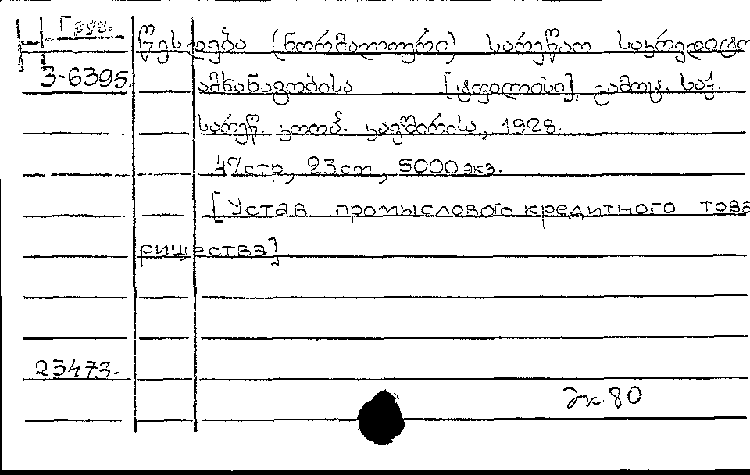 Груз.
წესდება (ნორმალური) სარეწაო საკრედიტო
3-6395. ამხანაგობისა [ტფილისი], გამოც. საქ.
სარეწ. კოოპ. კავშირისა, 1928.
47стр, 23cm, 5000экз.
[Устав промыслового кредитного това
рищества]
23473.
80